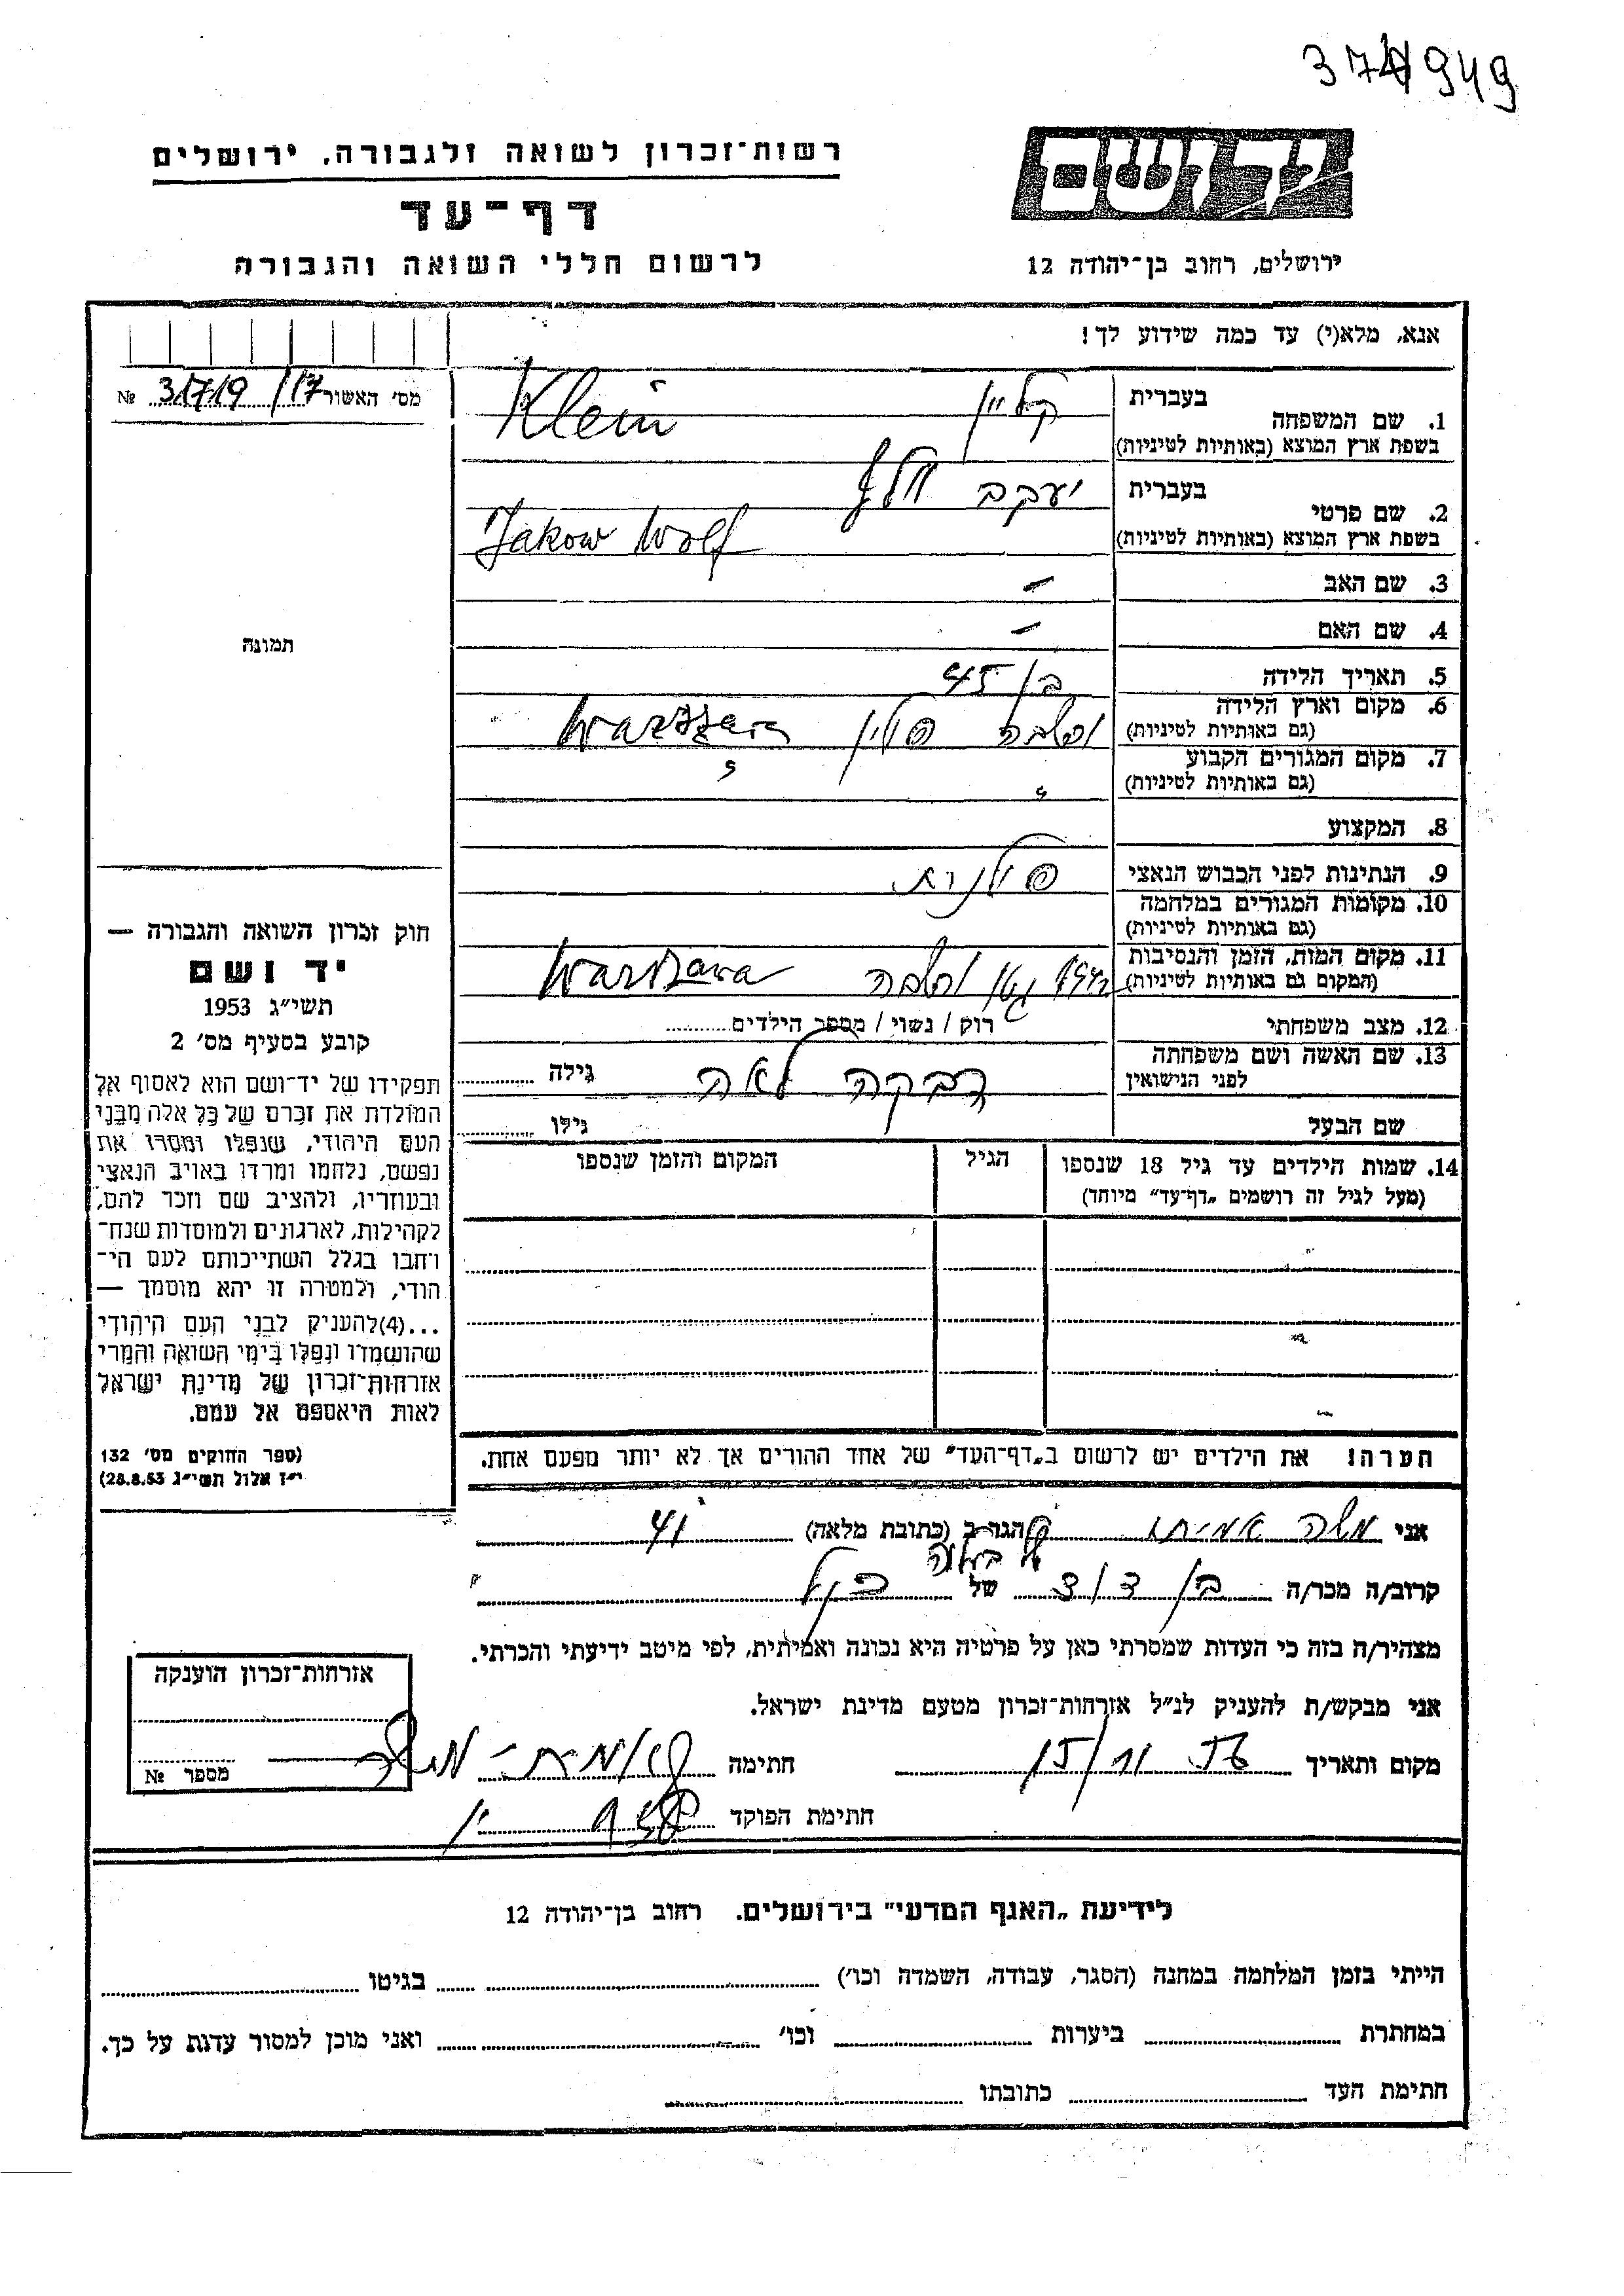 37 949
רשות־זכרון לשואה ולגבורה, ירושלים
יד ושם
דף־עד
לרשום חללי השואה והגבורה
ירושלים, רחוב בן־יהודה 12
אנא, מלא(י) עד כמה שידוע לך!
מס׳ האשור 31719/17 №
1. שם המשפחה בעברית קליין
בשפת ארץ המוצא (באותיות לטיניות) Klein
2. שם פרטי בעברית יעקב וולף
בשפת ארץ המוצא (באותיות לטיניות) Jakow Wolf
3. שם האב –
4. שם האם –
תמונה
5. תאריך הלידה בן 45
6. מקום וארץ הלידה (גם באותיות לטיניות) ורשבה פולין Warszawa
7. מקום המגורים הקבוע (גם באותיות לטיניות)
8. המקצוע
9. הנתינות לפני הכבוש הנאצי פולנית
10. מקומות המגורים במלחמה (גם באותיות לטיניות)
11. מקום המות, הזמן והנסיבות (המקום גם באותיות לטיניות) גטו ורשבה Warszawa
12. מצב משפחתי רווק / נשוי / מספר הילדים
13. שם האשה ושם משפחתה לפני הנישואין רבקה לאה גילה
שם הבעל גילו
14. שמות הילדים עד גיל 18 שנספו הגיל המקום והזמן שנספו
(מעל לגיל זה רושמים „דף־עד״ מיוחד)
חוק זכרון השואה והגבורה —
יד ושם
תשי״ג 1953
קובע בסעיף מס׳ 2
תפקידו של יד־ושם הוא לאסוף אל
המולדת את זכרם של כל אלה מבני
העם היהודי, שנפלו ומסרו את
נפשם, נלחמו ומרדו באויב הנאצי
ובעוזריו, ולהציב שם וזכר להם,
לקהילות, לארגונים ולמוסדות שנח־
רבו בגלל השתייכותם לעם הי־
הודי, ולמטרה זו יהא מוסמך —
...(4) להעניק לבני העם היהודי
שהושמדו ונפלו בימי השואה והמרי
אזרחות־זכרון של מדינת ישראל
לאות היאספם אל עמם.
(ספר החוקים מס׳ 132
י״ז אלול תשי״ג 28.8.53)
הערה! את הילדים יש לרשום ב„דף־העד״ של אחד ההורים אך לא יותר מפעם אחת.
אני משה הגר ב (כתובת מלאה) 41
קרוב/ה מכר/ה בן דוד של
מצהיר/ה בזה כי העדות שמסרתי כאן על פרטיה היא נכונה ואמיתית, לפי מיטב ידיעתי והכרתי.
אני מבקש/ת להעניק לנ״ל אזרחות־זכרון מטעם מדינת ישראל.
מקום ותאריך חתימה
חתימת הפוקד
אזרחות־זכרון הוענקה
מספר №
לידיעת „האגף המדעי״ בירושלים. רחוב בן־יהודה 12
הייתי בזמן המלחמה במחנה (הסגר, עבודה, השמדה וכו׳) בגיטו
במחתרת ביערות וכו׳ ואני מוכן למסור עדות על כך.
חתימת העד כתובתו